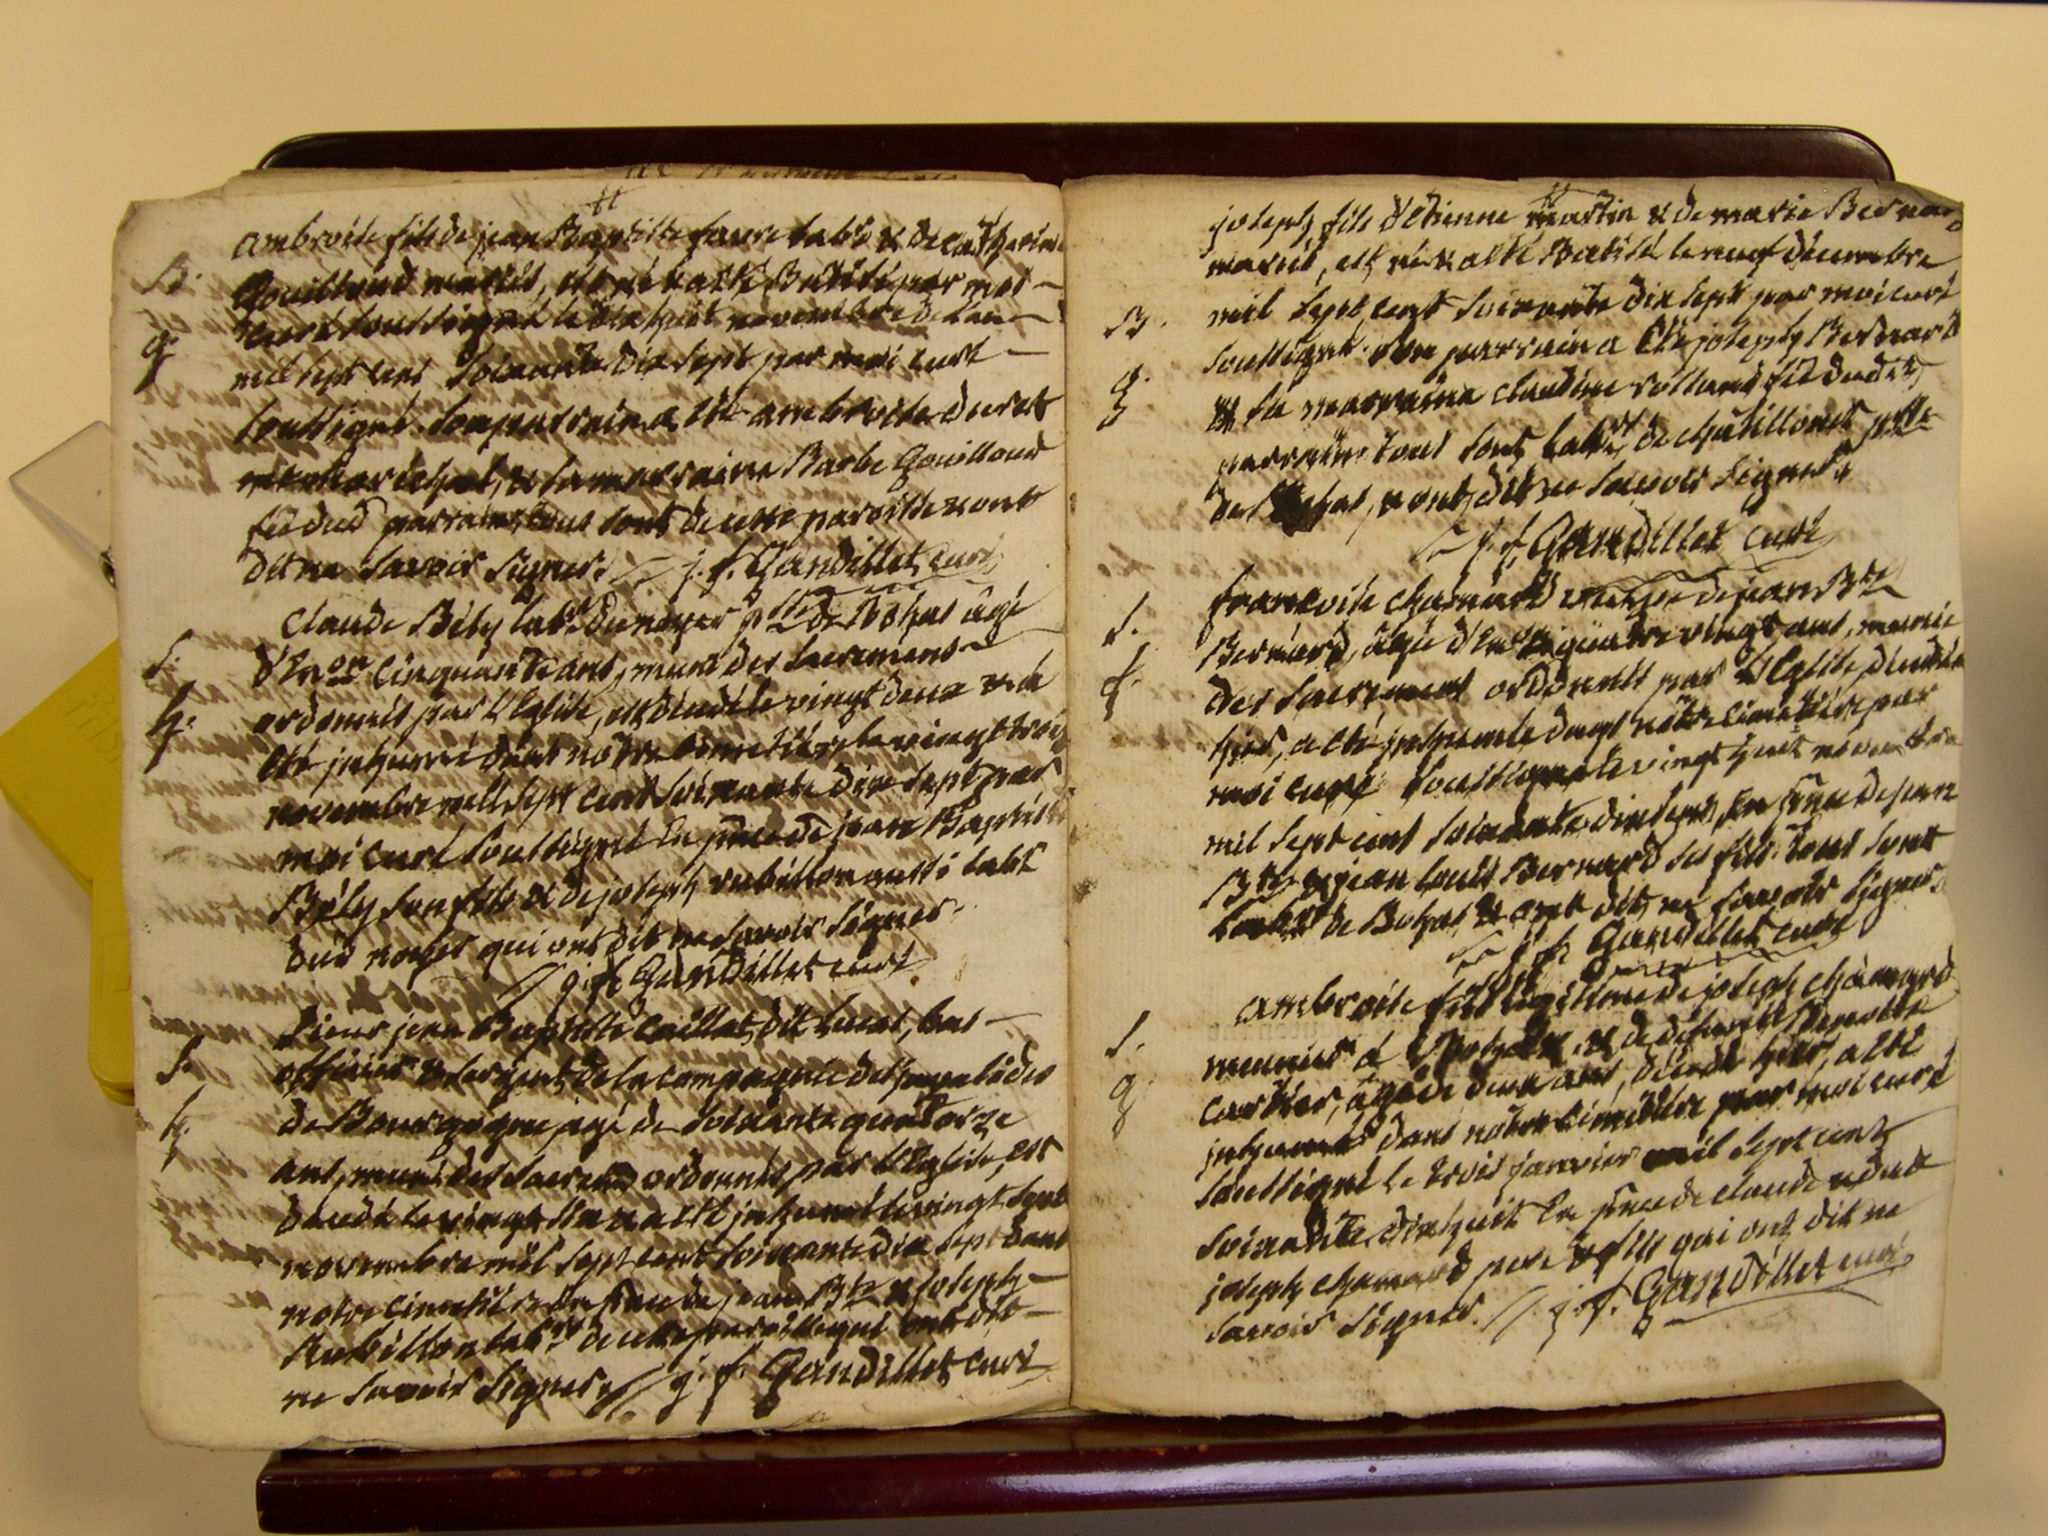 ambroise fils de jean Baptiste faure lab.r & de catherine
B. Gouilloud mariés, est né & a été Batisé par moi
g. curé soussigné le dix huit novembre de l'an
mil sept cent soixante dix sept par moi curé
soussigné. son parrain a été ambroise
& sa marraine Barbe Gouilloud
dud parrain, tous sont de cette paroisse & ont
dit ne savoir signer. j. f. Gandillet curé
Claude Bély lab.r du noyer p.sse de Bohas âgé
S. d'En.on cinquante ans, muni des sacremens
h. ordonnés par l'Eglise, est décédé le vingt deux & a
été inhumé dans notre cimetière le vingt trois
novembre mill sept cent soixante dix sept par
moi curé soussigné En p.nce de jean Baptiste
Bély son fils & de joseph rubillon aussi lab.r
dud noyer qui ont dit ne savoir signer.
j. f. Gandillet curé
Sieur jean Baptiste Caillat, dit bas
S. officier & sergent de la compagnie des invalides
h. de Bourgogne, agé de soixante quatorze
ans, muni des sacremens ordonnés par l'Eglise, est
décédé le vingt & a été inhumé le vingt sept
novembre mil sept cent soixante dix sept dans
notre cimetière En p.nce de jean B.te & joseph
Rubillon lab.rs de cette paroisse qui ont dit
ne savoir signer j. f. Gandillet curé
joseph fils d'Etienne martin & de marie Bernard
mariés, est né & a été Batisé le neuf décembre
B. mil sept cent soixante dix sept par moi curé
g. soussigné. son parrain a été joseph Bernard
& sa marraine claudine rolland
parrain, tous sont lab.rs de chatillonet p.sse
de Bohas, & ont dit ne savoir signer
j. f. Gandillet curé
françoise chanard veuve de jean B.te
S. Bernard, âgée d'En.on quatre vingt ans, munie
f. des sacremens ordonnés par l'Eglise, décédée
hier, a été inhumée dans nôtre cimetière par
moi curé soussigné le vingt huit novembre
mil sept cent soixante dix sept, En p.nce de jean
B.te & jean louis Bernard ses fils. tous sont
lab.rs de Bohas & ont dit ne savoir signer.
j. f. Gandillet curé
ambroise fils légitime de joseph chanard
S. meunier à Bohas, & de défunte
g. cartier, âgé de deux ans, décédé hier, a été
inhumé dans nôtre cimetière par moi curé
soussigné le trois janvier mil sept cent
soixante dix huit En p.nce de claude & dud
joseph chanard pere & fils qui ont dit ne
savoir signer. j. f. Gandillet curé